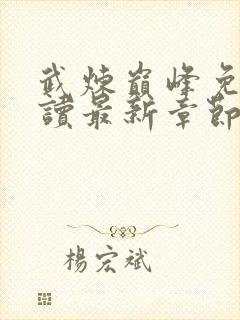 武煉巔峰免
讀最新章節
楊宏斌